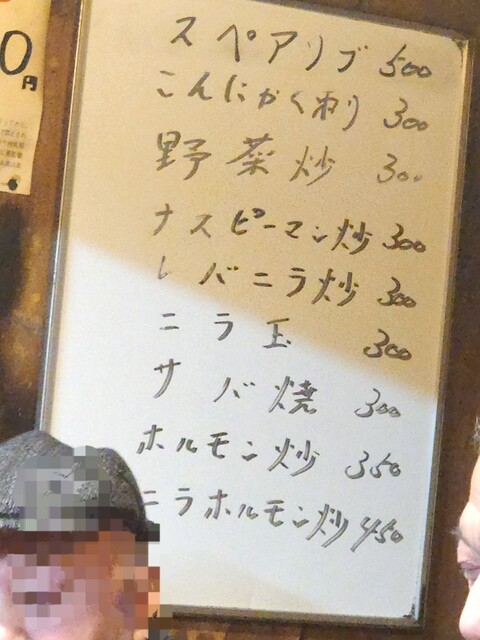 0円
スペアリブ 500
こんにゃく刺り 300
野菜炒 300
ナスピーマン炒 300
レバニラ炒 300
ニラ玉 300
サバ焼 300
ホルモン炒 350
ニラホルモン炒 450